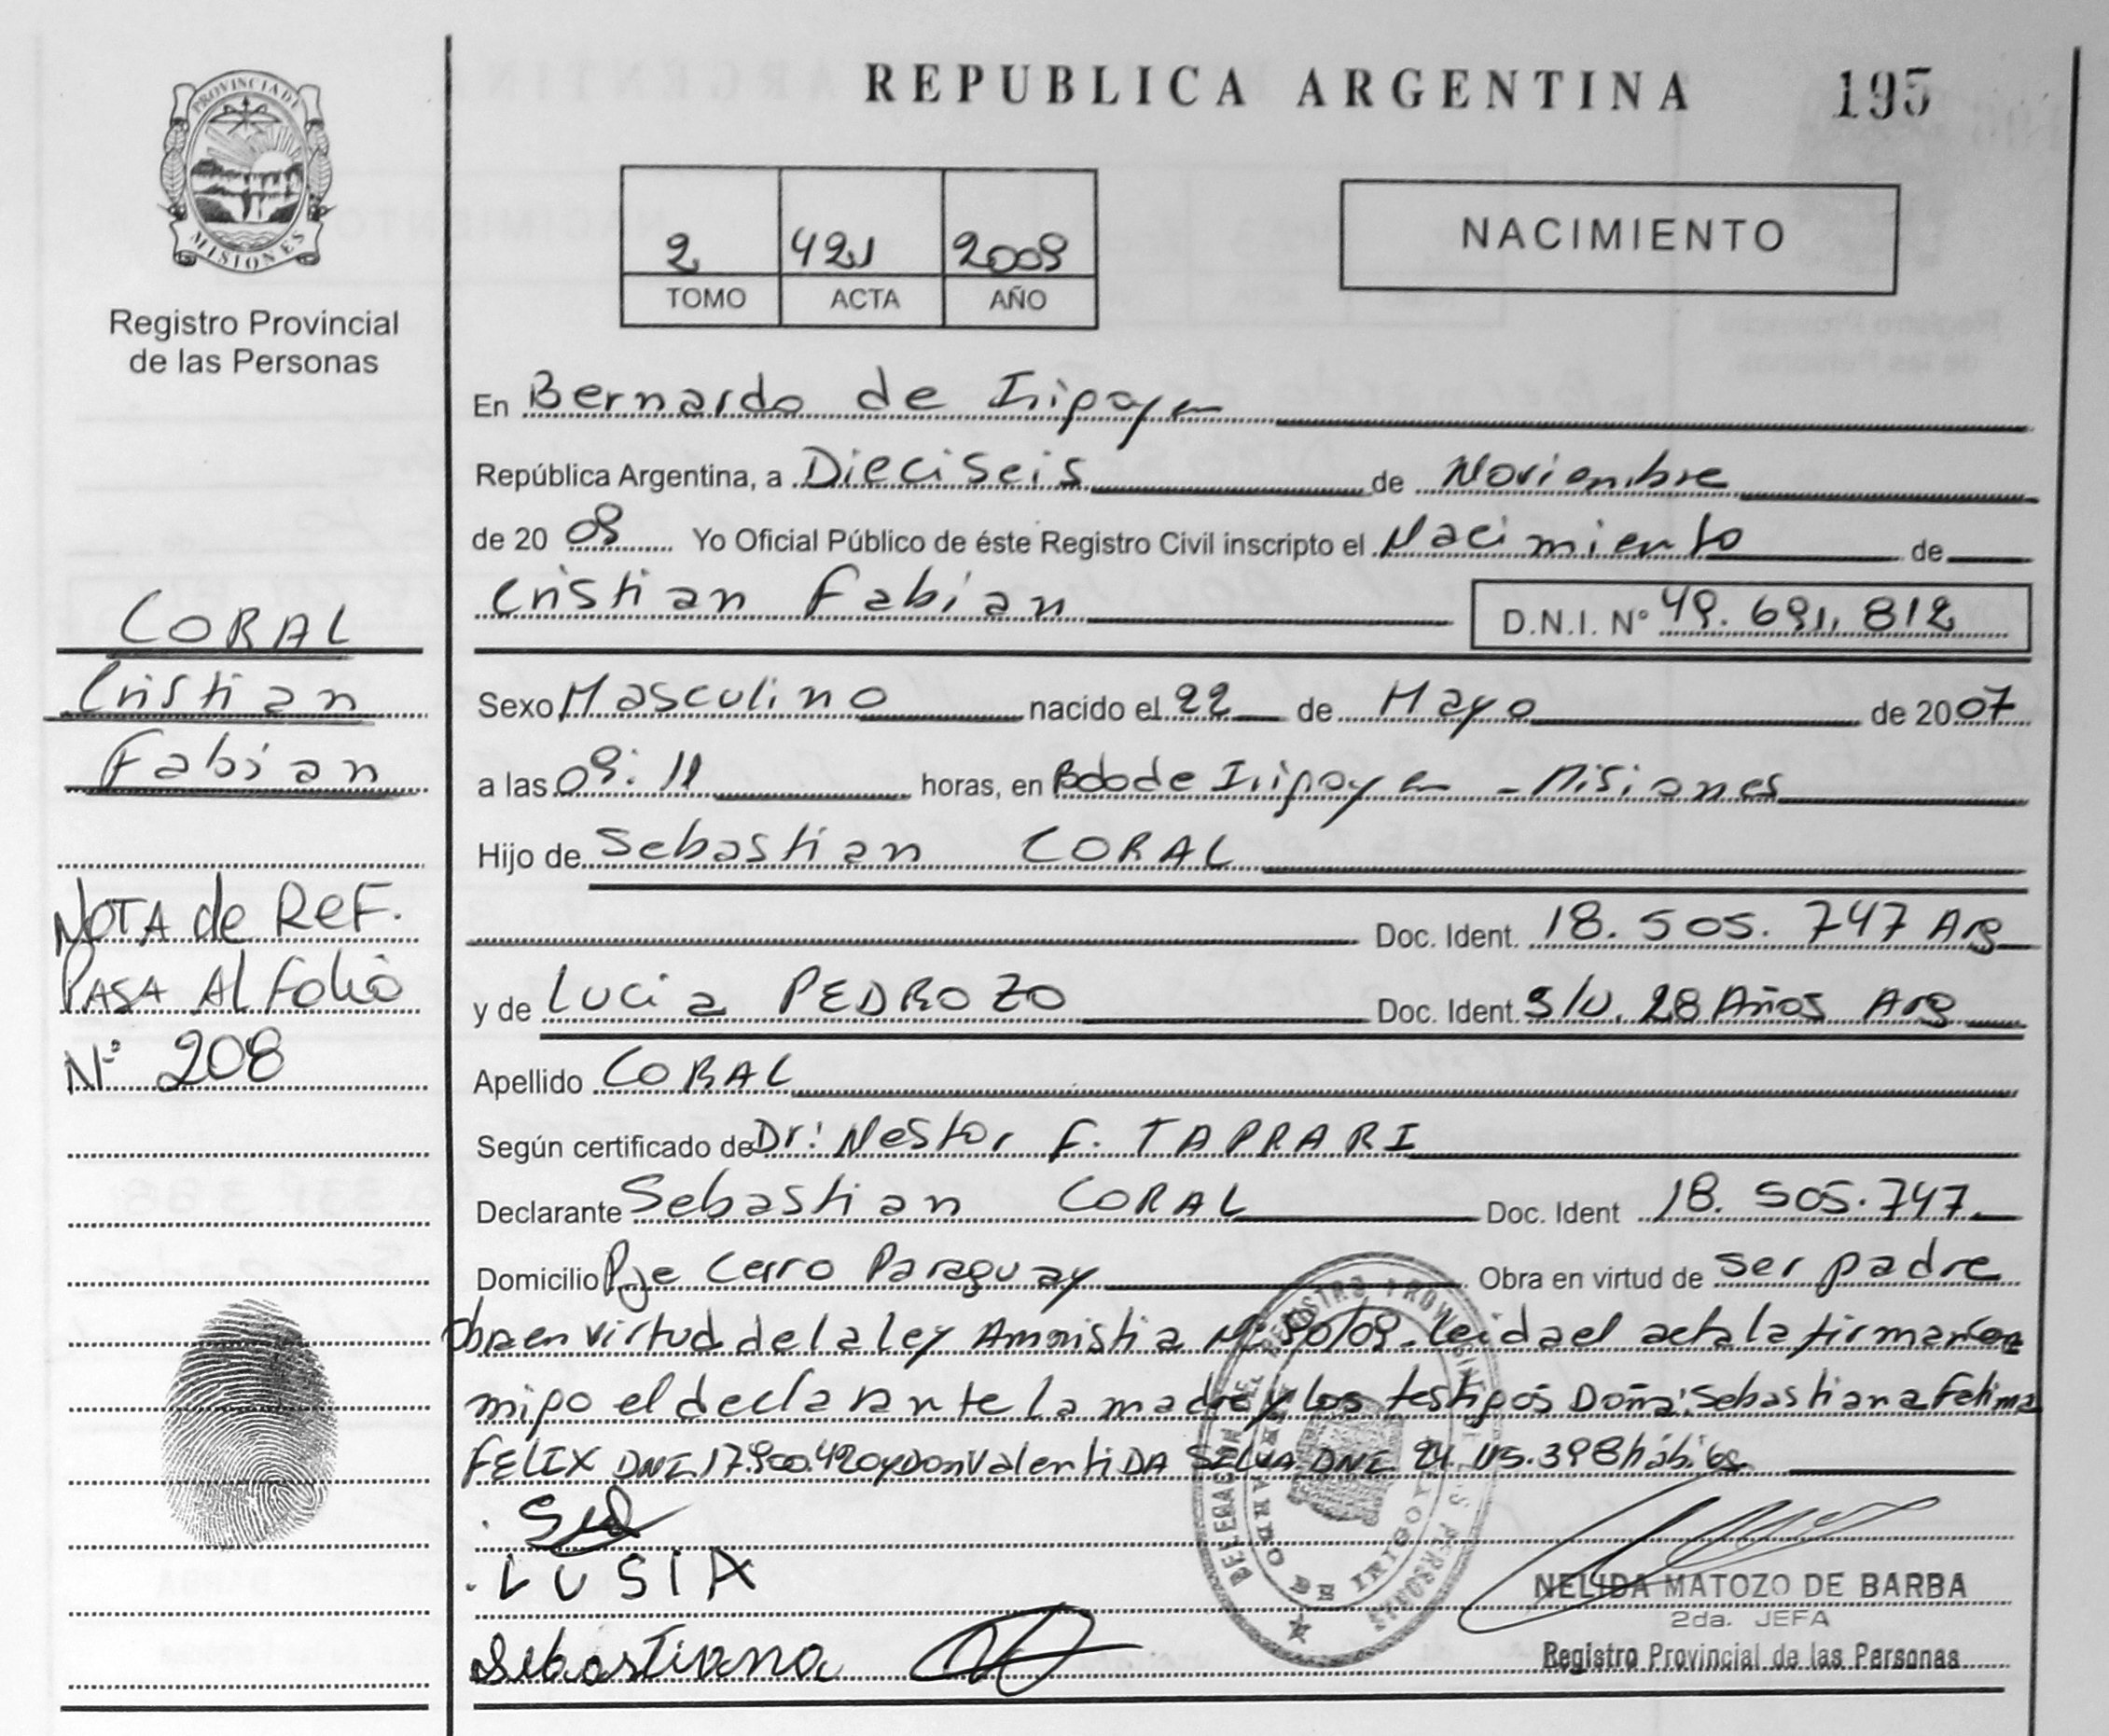 REPUBLICA ARGENTINA 195
PROVINCIA DE
MISIONES
Registro Provincial
de las Personas
2 421 2009
TOMO ACTA AÑO
NACIMIENTO
En Bernardo de Iripoyen
República Argentina, a Dieciseis de Noviembre
de 20 09 Yo Oficial Público de éste Registro Civil inscripto el Nacimiento de
Cristian Fabian D.N.I. Nº 49.691.812
CORAL
Cristian
Fabian
Sexo Masculino nacido el 22 de Mayo de 2007
a las 09:11 horas, en Bdo de Iripoyen - Misiones
Hijo de Sebastian CORAL
NOTA de ReF.
PASA Al Folio
Nº 208
Doc. Ident. 18.505.747 Arg
y de Lucia PEDROZO Doc. Ident. S/U. 28 Años Arg
Apellido CORAL
Según certificado de Dr: Nestor F. TAPRARI
Declarante Sebastian CORAL Doc. Ident 18.505.747
Domicilio Pje Cerro Paraguay Obra en virtud de ser padre
Obra en virtud de la ley Amnistia Nº 90/09. Leida el acta la firman con
mipo el declarante la madre y los testipos Doña: Sebastiana Fatima
FELIX DNI. 17.900.420 y Don Valenti DA SILVA DNI 24.115.398 hábiles
LUSIA
Sebastiana
DELEGACION DEL REGISTRO PROVINCIAL DE LAS PERSONAS
BERNARDO DE IRIGOYEN
NELIDA MATOZO DE BARBA
2da. JEFA
Registro Provincial de las Personas